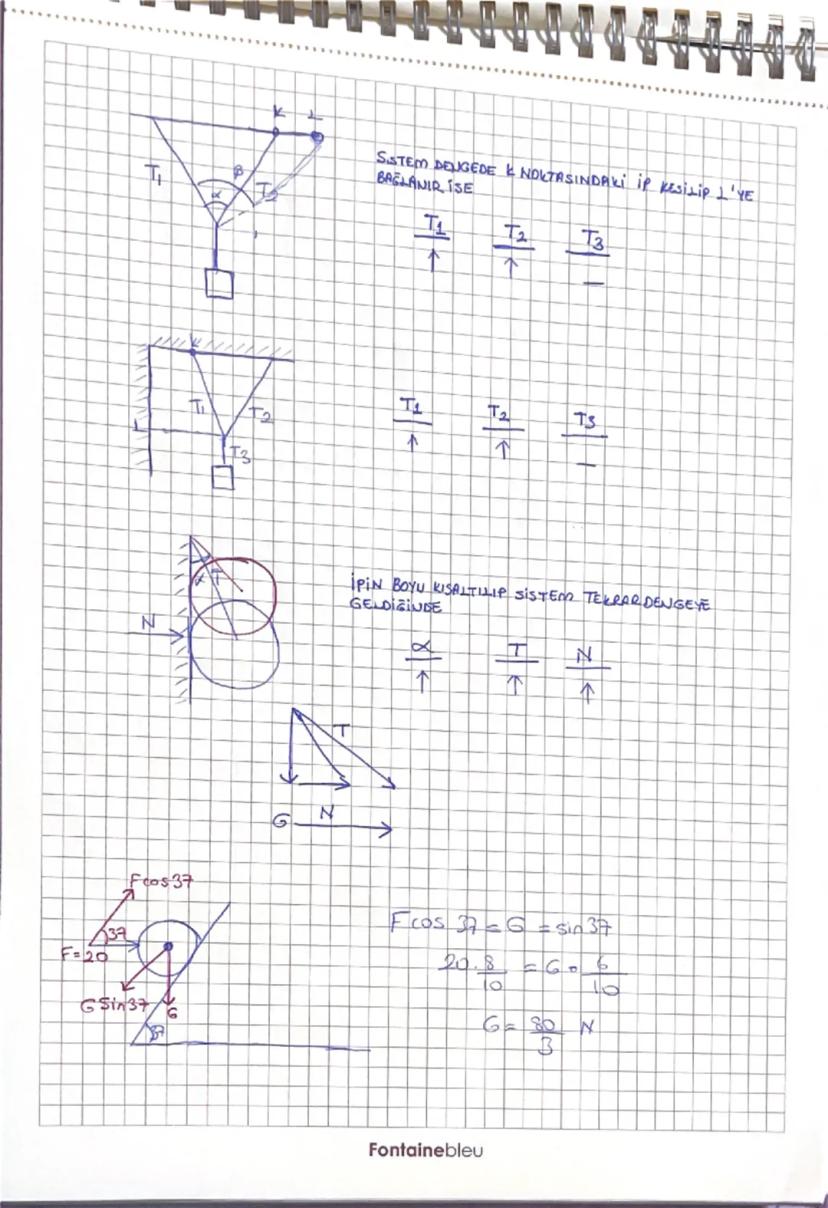 K L
T1 α β T2
SİSTEM DENGEDE K NOKTASINDAKİ İP KESİLİP L'YE
BAĞLANIR İSE
T1 T2 T3
↑ ↑ —
K
T1 T2
L
T3
T1 T2 T3
↑ ↑ —
α T
N
İPİN BOYU KISALTILIP SİSTEM TEKRAR DENGEYE
GELDİĞİNDE
α T N
↑ ↑ ↑
T
G N
Fcos37
37
F=20
GSin37 G
37
Fcos 37 = G = sin37
20. 8/10 = G . 6/10
G = 80/3 N
Fontainebleu